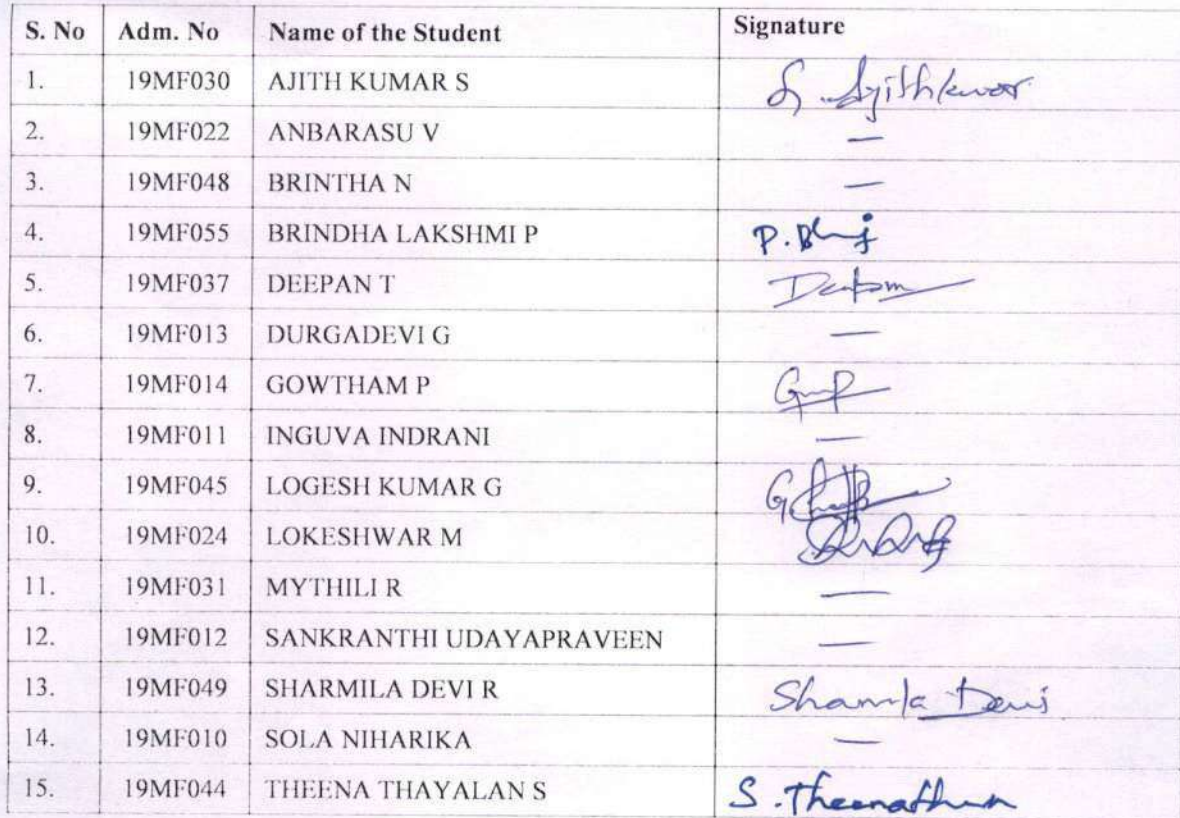 S. No Adm. No Name of the Student Signature
1. 19MF030 AJITH KUMAR S S. Ajithkumar
2. 19MF022 ANBARASU V —
3. 19MF048 BRINTHA N —
4. 19MF055 BRINDHA LAKSHMI P P.
5. 19MF037 DEEPAN T Deepan
6. 19MF013 DURGADEVI G —
7. 19MF014 GOWTHAM P
8. 19MF011 INGUVA INDRANI —
9. 19MF045 LOGESH KUMAR G G
10. 19MF024 LOKESHWAR M
11. 19MF031 MYTHILI R —
12. 19MF012 SANKRANTHI UDAYAPRAVEEN —
13. 19MF049 SHARMILA DEVI R Sharmila Devi
14. 19MF010 SOLA NIHARIKA —
15. 19MF044 THEENA THAYALAN S S.